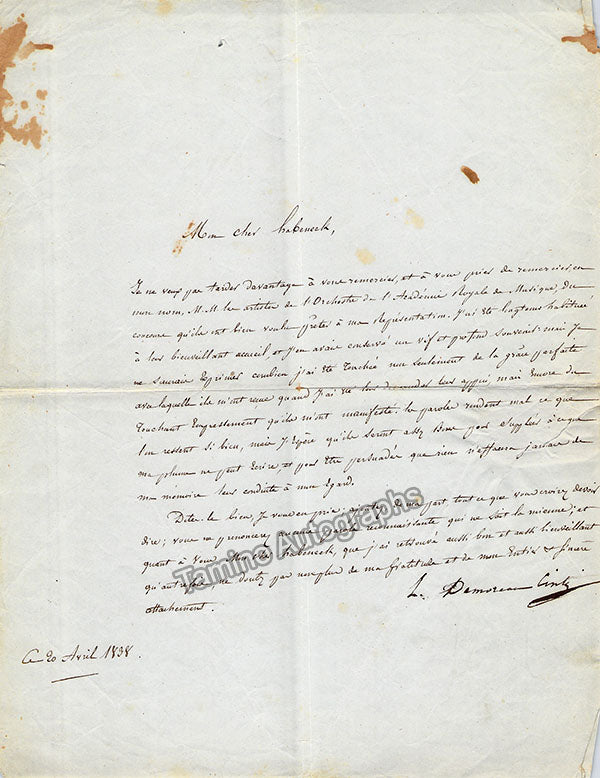 Mon cher habeneck,
Je ne veux pas tarder davantage à vous remercier, et à vous prier de remercier, en
mon nom, M.M. les artistes de l'Orchestre de l'Académie Royale de Musique, du
concours qu'ils ont bien voulu prêter à ma Représentation. J'ai été longtems habituée
à leur bienveillant accueil et j'en avais conservé un vif et profond souvenir: mais je
ne saurais exprimer combien j'ai été touchée non seulement de la grâce parfaite
avec laquelle ils m'ont reçue quand j'ai été leur demander leur appui, mais encore du
touchant empressement qu'ils m'ont manifesté. la parole rendent mal ce que
l'on ressent si bien, mais j'espère qu'ils seront assez bons pour suppléer à ce que
ma plume ne peut écrire, et pour être persuadés que rien n'effacera jamais de
ma mémoire leur conduite à mon égard.
Dites-le bien, je vous en prie; ajoutez de ma part, tout ce que vous croirez devoir
dire; vous ne prononcerez aucune parole reconnaissante qui ne soit la mienne; et
quant à vous, mon cher habeneck, que j'ai retrouvé aussi bon et aussi bienveillant
qu'autrefois, ne doutez pas non plus de ma gratitude et de mon entier & sincère
attachement.
L. Damoreau Cinti
Ce 20 Avril 1838.
Tamino Autographs